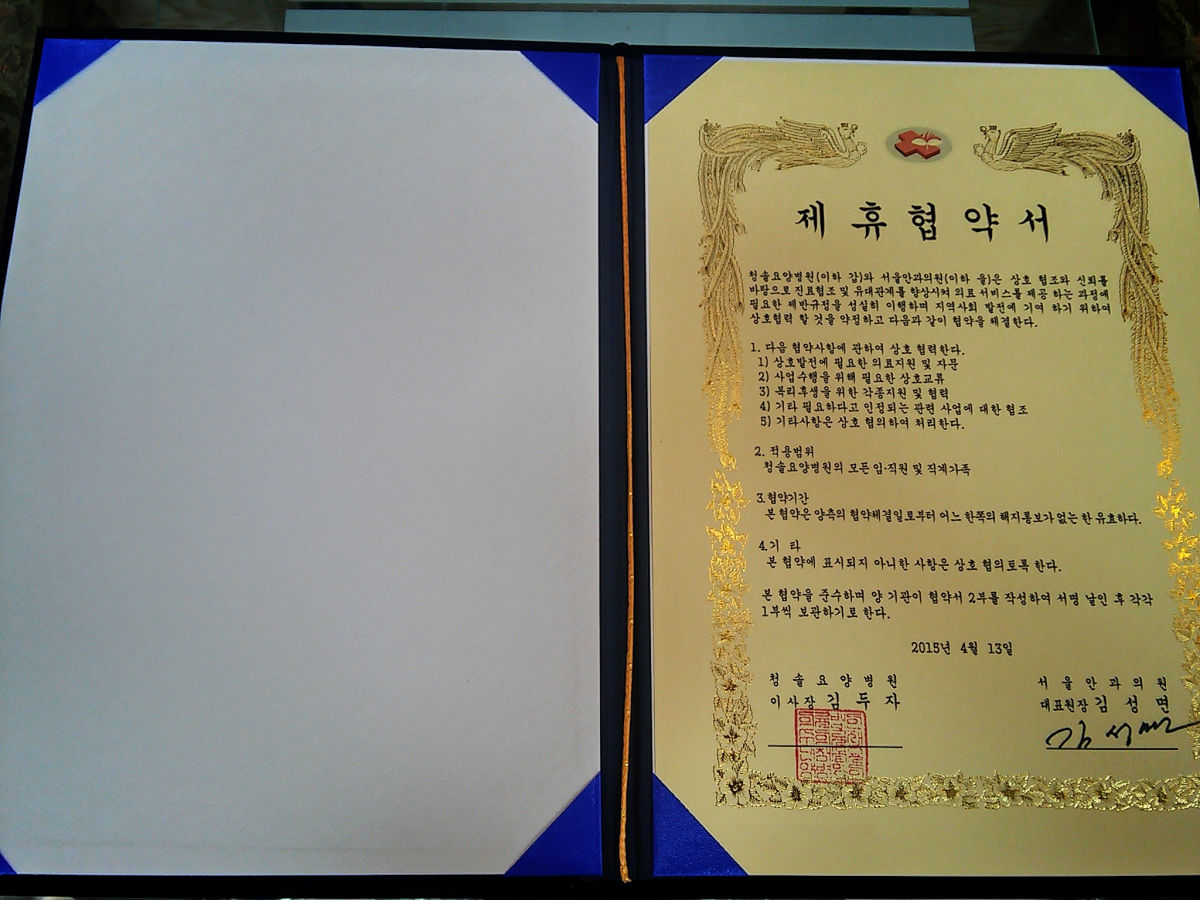 제휴협약서
청솔요양병원(이하 갑)와 서울안과의원(이하 을)은 상호 협조와 신뢰를
바탕으로 진료협조 및 유대관계를 향상시켜 의료 서비스를 제공 하는 과정에
필요한 제반규정을 성실히 이행하며 지역사회 발전에 기여 하기 위하여
상호협력 할 것을 약정하고 다음과 같이 협약을 체결한다.
1. 다음 협약사항에 관하여 상호 협력한다.
1) 상호발전에 필요한 의료지원 및 자문
2) 사업수행을 위해 필요한 상호교류
3) 복리후생을 위한 각종지원 및 협력
4) 기타 필요하다고 인정되는 관련 사업에 대한 협조
5) 기타사항은 상호 협의하여 처리한다.
2. 적용범위
청솔요양병원의 모든 임·직원 및 직계가족
3.협약기간
본 협약은 양측의 협약체결일로부터 어느 한쪽의 해지통보가 없는 한 유효하다.
4.기 타
본 협약에 표시되지 아니한 사항은 상호 협의토록 한다.
본 협약을 준수하며 양 기관이 협약서 2부를 작성하여 서명 날인 후 각각
1부씩 보관하기로 한다.
2015년 4월 13일
청솔요양병원
이사장 김두자
서울안과의원
대표원장 김성면